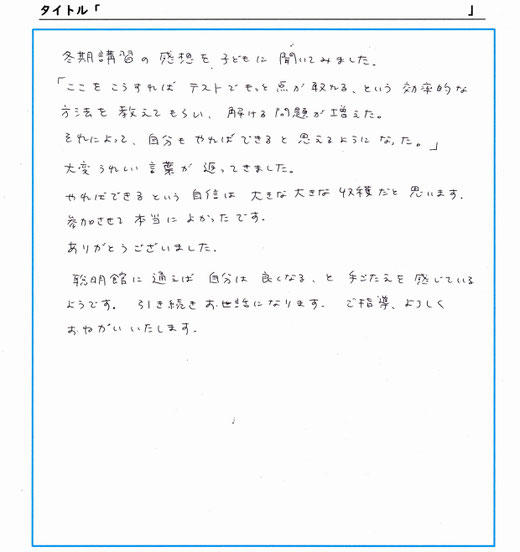 タイトル「 」
冬期講習の感想を、子どもに聞いてみました。
「ここをこうすれば テストでもっと点が取れる、という 効率的な
方法を教えてもらい、解ける問題が増えた。
それによって、自分もやればできると思えるようになった。」
大変うれしい言葉が返ってきました。
やればできるという自信は 大きな大きな収穫だと思います。
参加させて本当によかったです。
ありがとうございました。
聡明館に通えば 自分は良くなる、と 手ごたえを感じている
ようです。 引き続きお世話になります。 ご指導、よろしく
おねがいいたします。